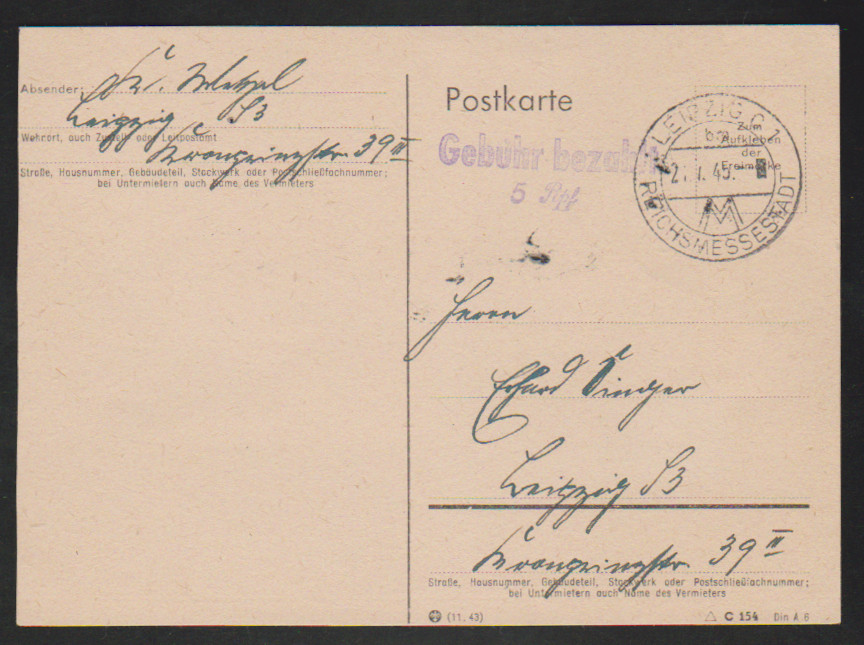 Absender: Fr. Wetzel
Leipzig S3
Wohnort, auch Zustell- oder Leitpostamt
Kronprinzstr. 39 III
Straße, Hausnummer, Gebäudeteil, Stockwerk oder Postschließfachnummer;
bei Untermietern auch Name des Vermieters
Postkarte
Gebühr bezahlt
5 Rpf
LEIPZIG C 1
bm
Zum
Aufkleben
der
Freimarke
45.
REICHSMESSESTADT
Herrn
Erhard Singer
Leipzig S3
Kronprinzstr. 39 III
Straße, Hausnummer, Gebäudeteil, Stockwerk oder Postschließfachnummer;
bei Untermietern auch Name des Vermieters
(11. 43)
C 154 Din A 6